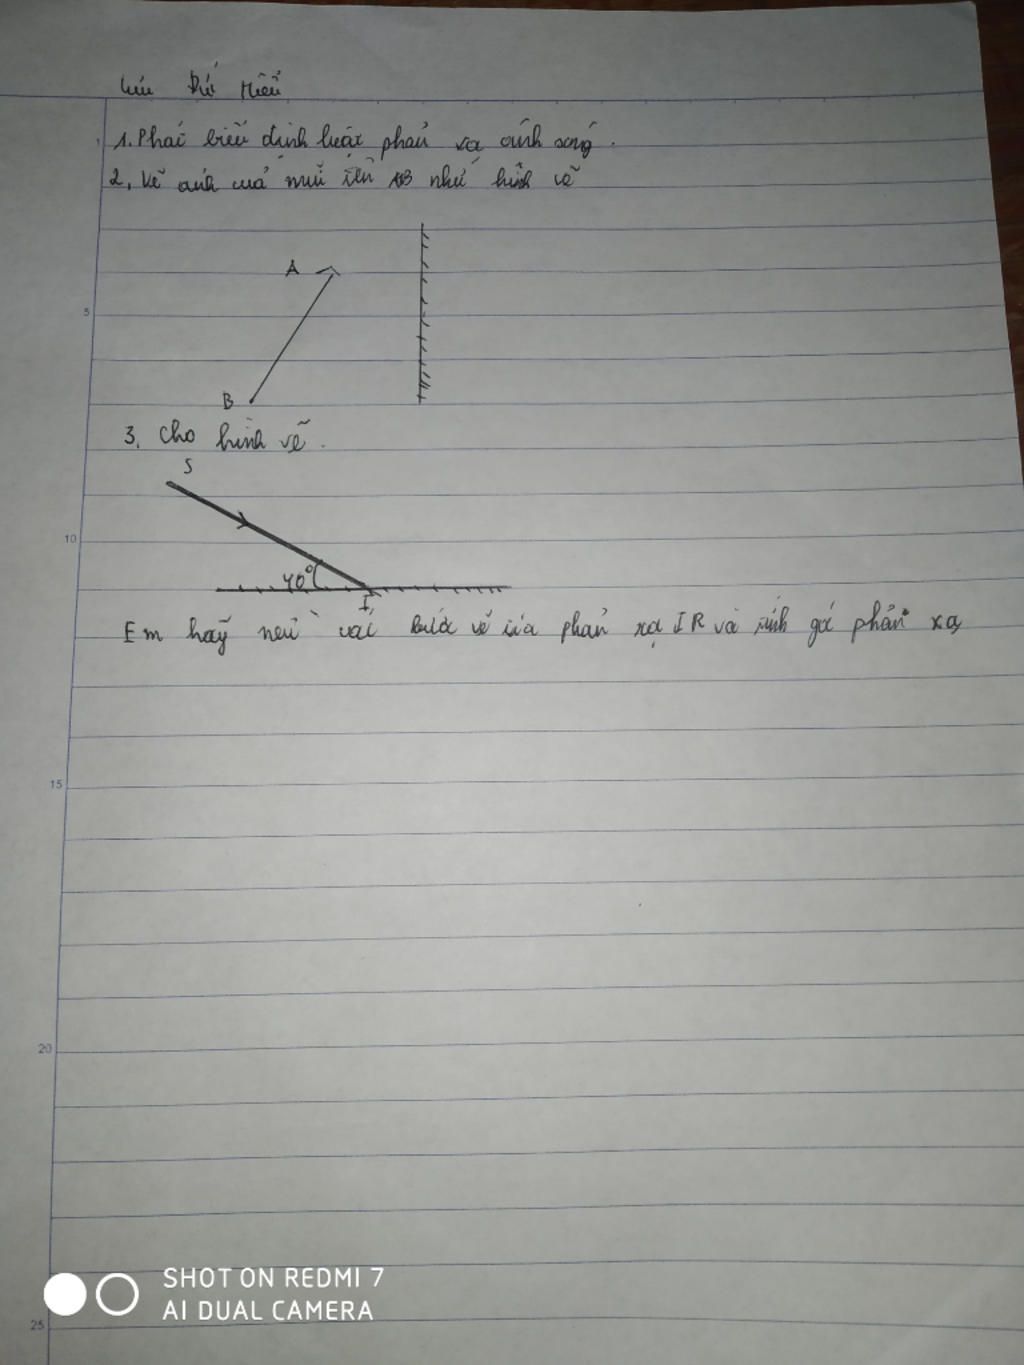 1. Phát biểu định luật phản xạ ánh sáng.
2, Vẽ ảnh của mũi tên AB như hình vẽ
A
5
B
3. Cho hình vẽ.
S
10
40°
I
Em hãy nêu và vẽ tia phản xạ IR và tính góc phản xạ
15
20
SHOT ON REDMI 7
AI DUAL CAMERA
25